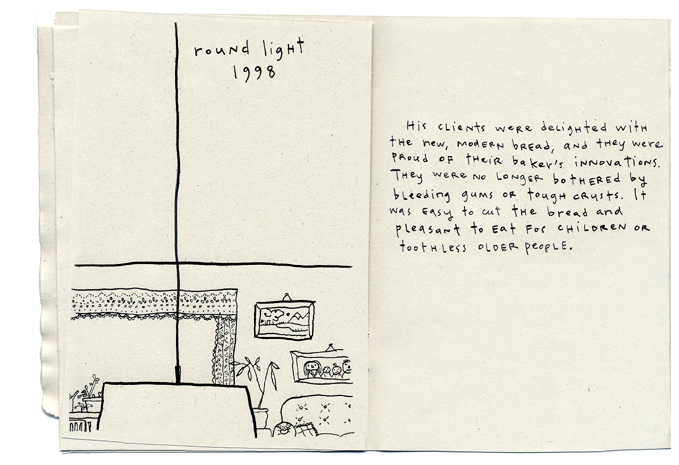 round light
1998
His clients were delighted with
the new, modern bread, and they were
proud of their baker's innovations.
They were no longer bothered by
bleeding gums or tough crusts. It
was easy to cut the bread and
pleasant to eat for children or
toothless older people.